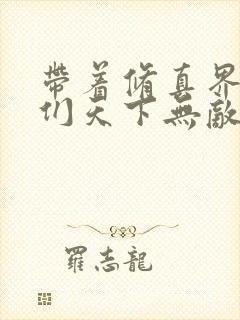 帶着脩真界
们天下無敵
羅志龍